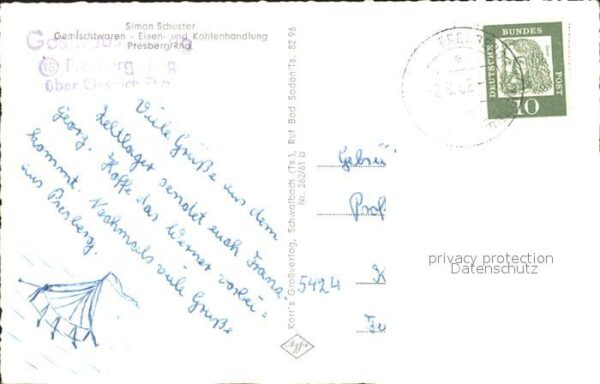 Simon Schuster
Gemischtwaren - Eisen- und Kohlenhandlung
Presberg/Rhg.
Gasthaus
Presberg Rhg
über Oestrich Rhg.
DEUTSCHE BUNDES POST
10
Viele Grüße aus dem
Zeltlager sendet euch Franz-
Georg. Hoffe das Werner vorbei-
kommt. Nochmals viele Grüße
aus Presberg.
Karr's Großverlag, Schwalbach (Ts.), Ruf Bad Soden/Ts. 82 96
Nr. 262/61 b
Agfa
Gebrü
Prof.
5424 K
privacy protection
Datenschutz